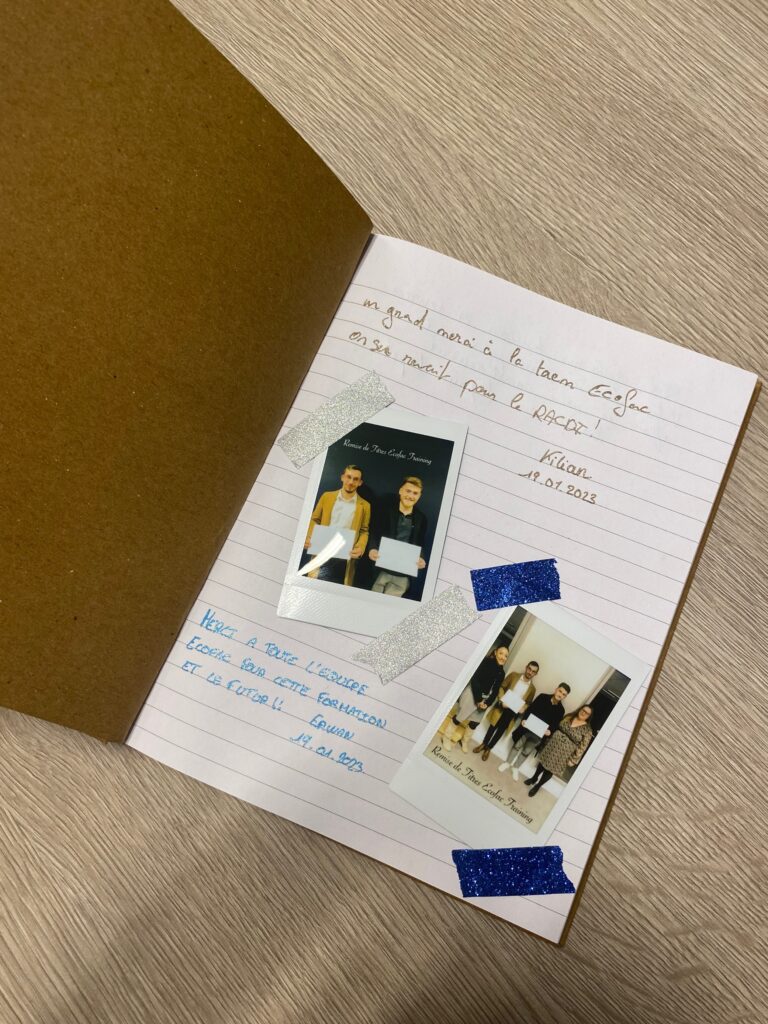 un grand merci à la team Ecofac
on se revoit pour le RACDI!
Kilian
19.01.2023
Remise de Titres Ecofac Training
MERCI A TOUTE L'EQUIPE
ECOFAC POUR CETTE FORMATION
ET LE FUTUR!!
ERWAN
19.01.2023
Remise de Titres Ecofac Training